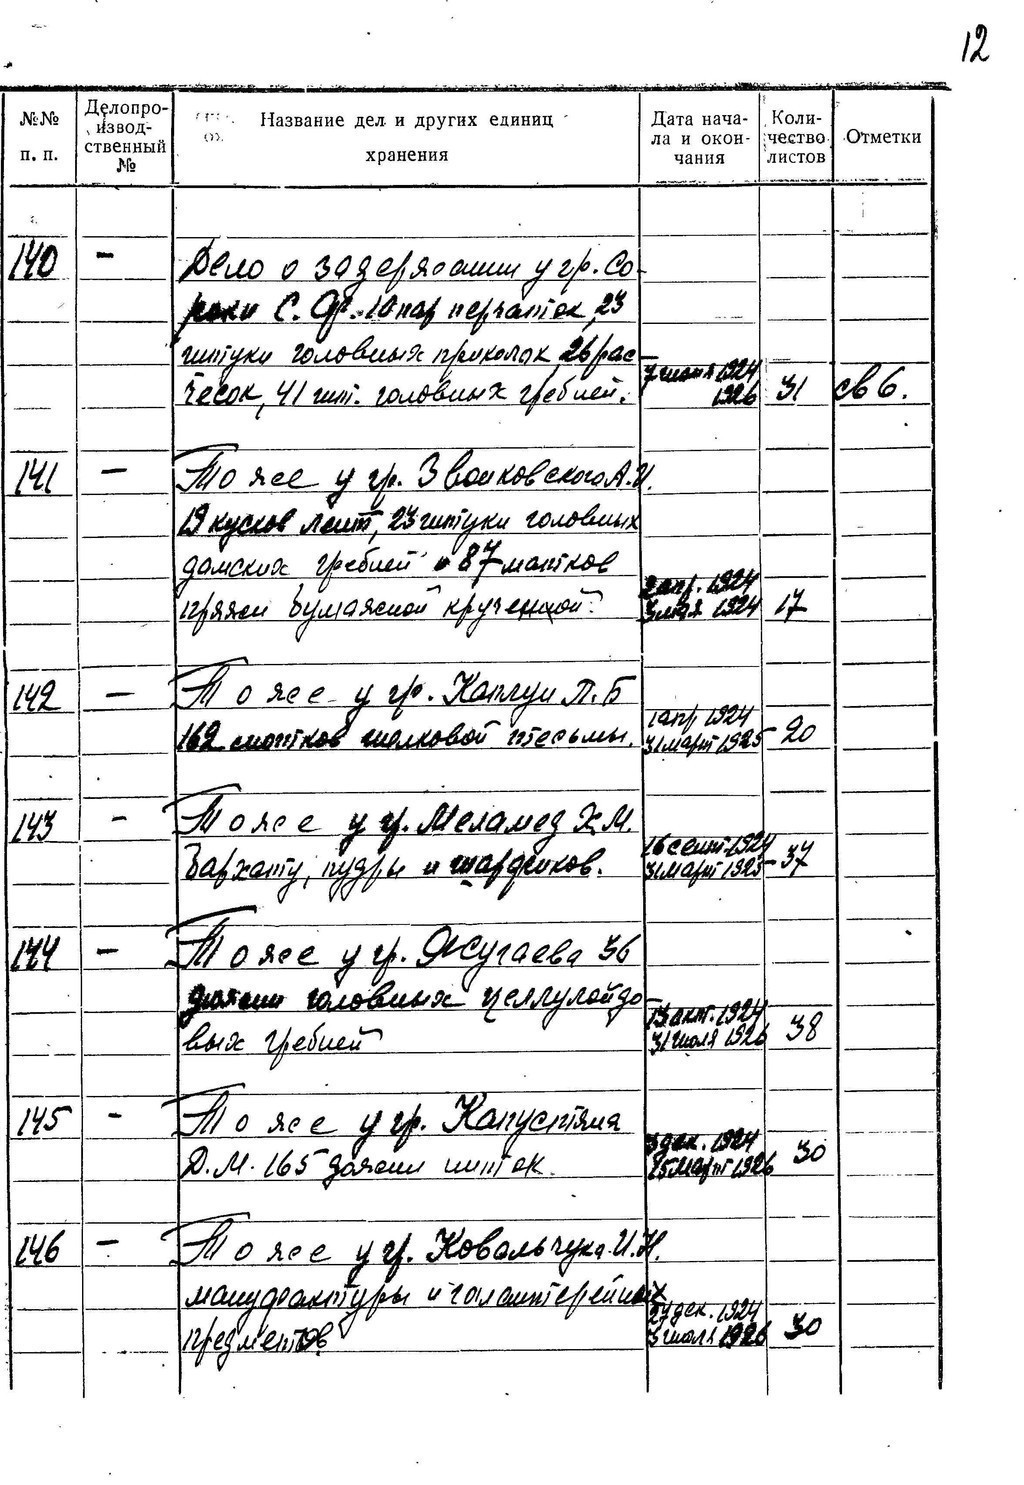 12
№№ п. п.
Делопро-
извод-
ственный
№
Название дел и других единиц
хранения
Дата нача-
ла и окон-
чания
Коли-
чество
листов
Отметки
140 — Дело о задержании у гр. Со-
роки С. Ф. 10 пар перчаток, 23
штуки головных приколок 26 рас-
чесок, 41 шт. головных гребней. 7 июня 1924 1926 31 св 6.
141 — То же у гр. Звонковского А.И.
19 кусков лент, 23 штуки головных
дамских гребней и 87 мотков
пряжи бумажной крученной. 2 апр. 1924 3 мая 1924 17
142 — То же у гр. Каплун Л.Б
162 мотков шелковой тесьмы. 1 апр 1924 31 март 1925 20
143 — То же у гр. Меламед Х.М.
Бархату, пудры и шарфиков. 16 сент. 1924 31 март 1925 37
144 — То же у гр. Жугаева 36
дюжин головных целлулойдо-
вых гребней 13 окт. 1924 31 июля 1926 38
145 — То же у гр. Капустяна
Д.М. 165 дюжин ниток. 3 дек. 1924 25 март 1926 30
146 — То же у гр. Ковальчука И.Н.
мануфактуры и галантерейных
предметов 27 дек. 1924 3 июля 1926 30